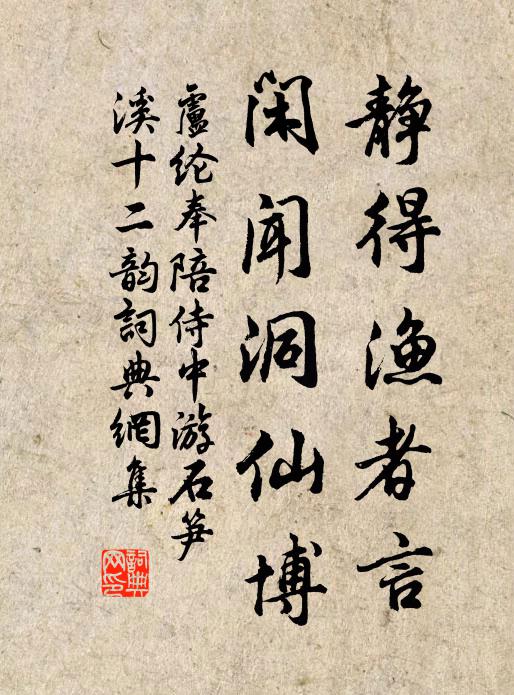 静得渔者言
闲闻洞仙博
盧纶奉陪侍中游石笋
溪十二韵詞典網集
詞典网印